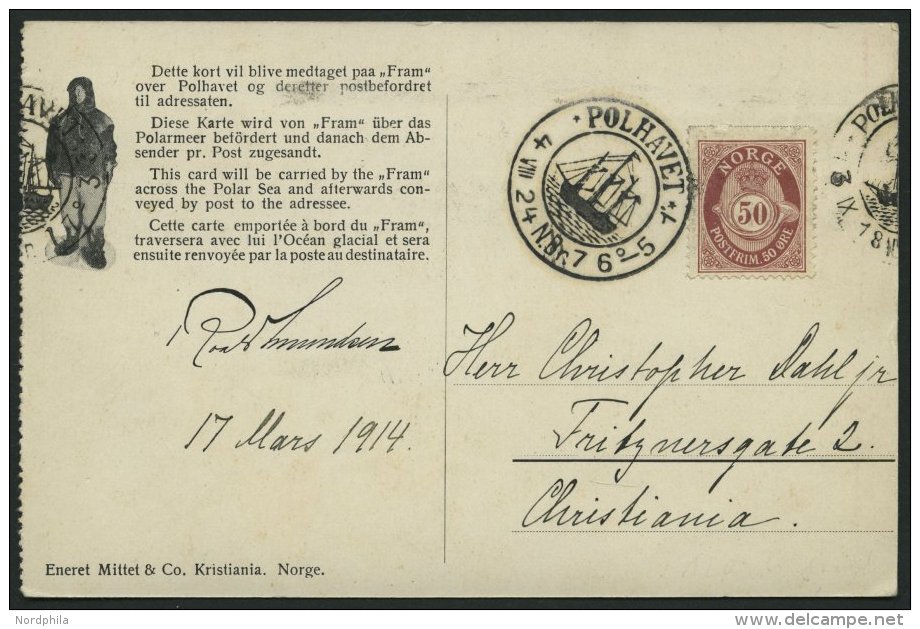 Dette kort vil blive medtaget paa „Fram“
over Polhavet og derefter postbefordret
til adressaten.
Diese Karte wird von „Fram“ über das
Polarmeer befördert und danach dem Ab-
sender pr. Post zugesandt.
This card will be carried by the „Fram“
across the Polar Sea and afterwards con-
veyed by post to the adressee.
Cette carte emportée à bord du „Fram“,
traversera avec lui l'Océan glacial et sera
ensuite renvoyée par la poste au destinataire.
Roald Amundsen
17 Mars 1914.
Eneret Mittet & Co. Kristiania. Norge.
POLHAVET
4 VIII 24 N.Ø. 7 6-5
NORGE
50
POSTFRIM. 50 ØRE
Herr Christopher Dahl jr
Fritznersgate 2.
Christiania.
Nordphila
delcampe.net